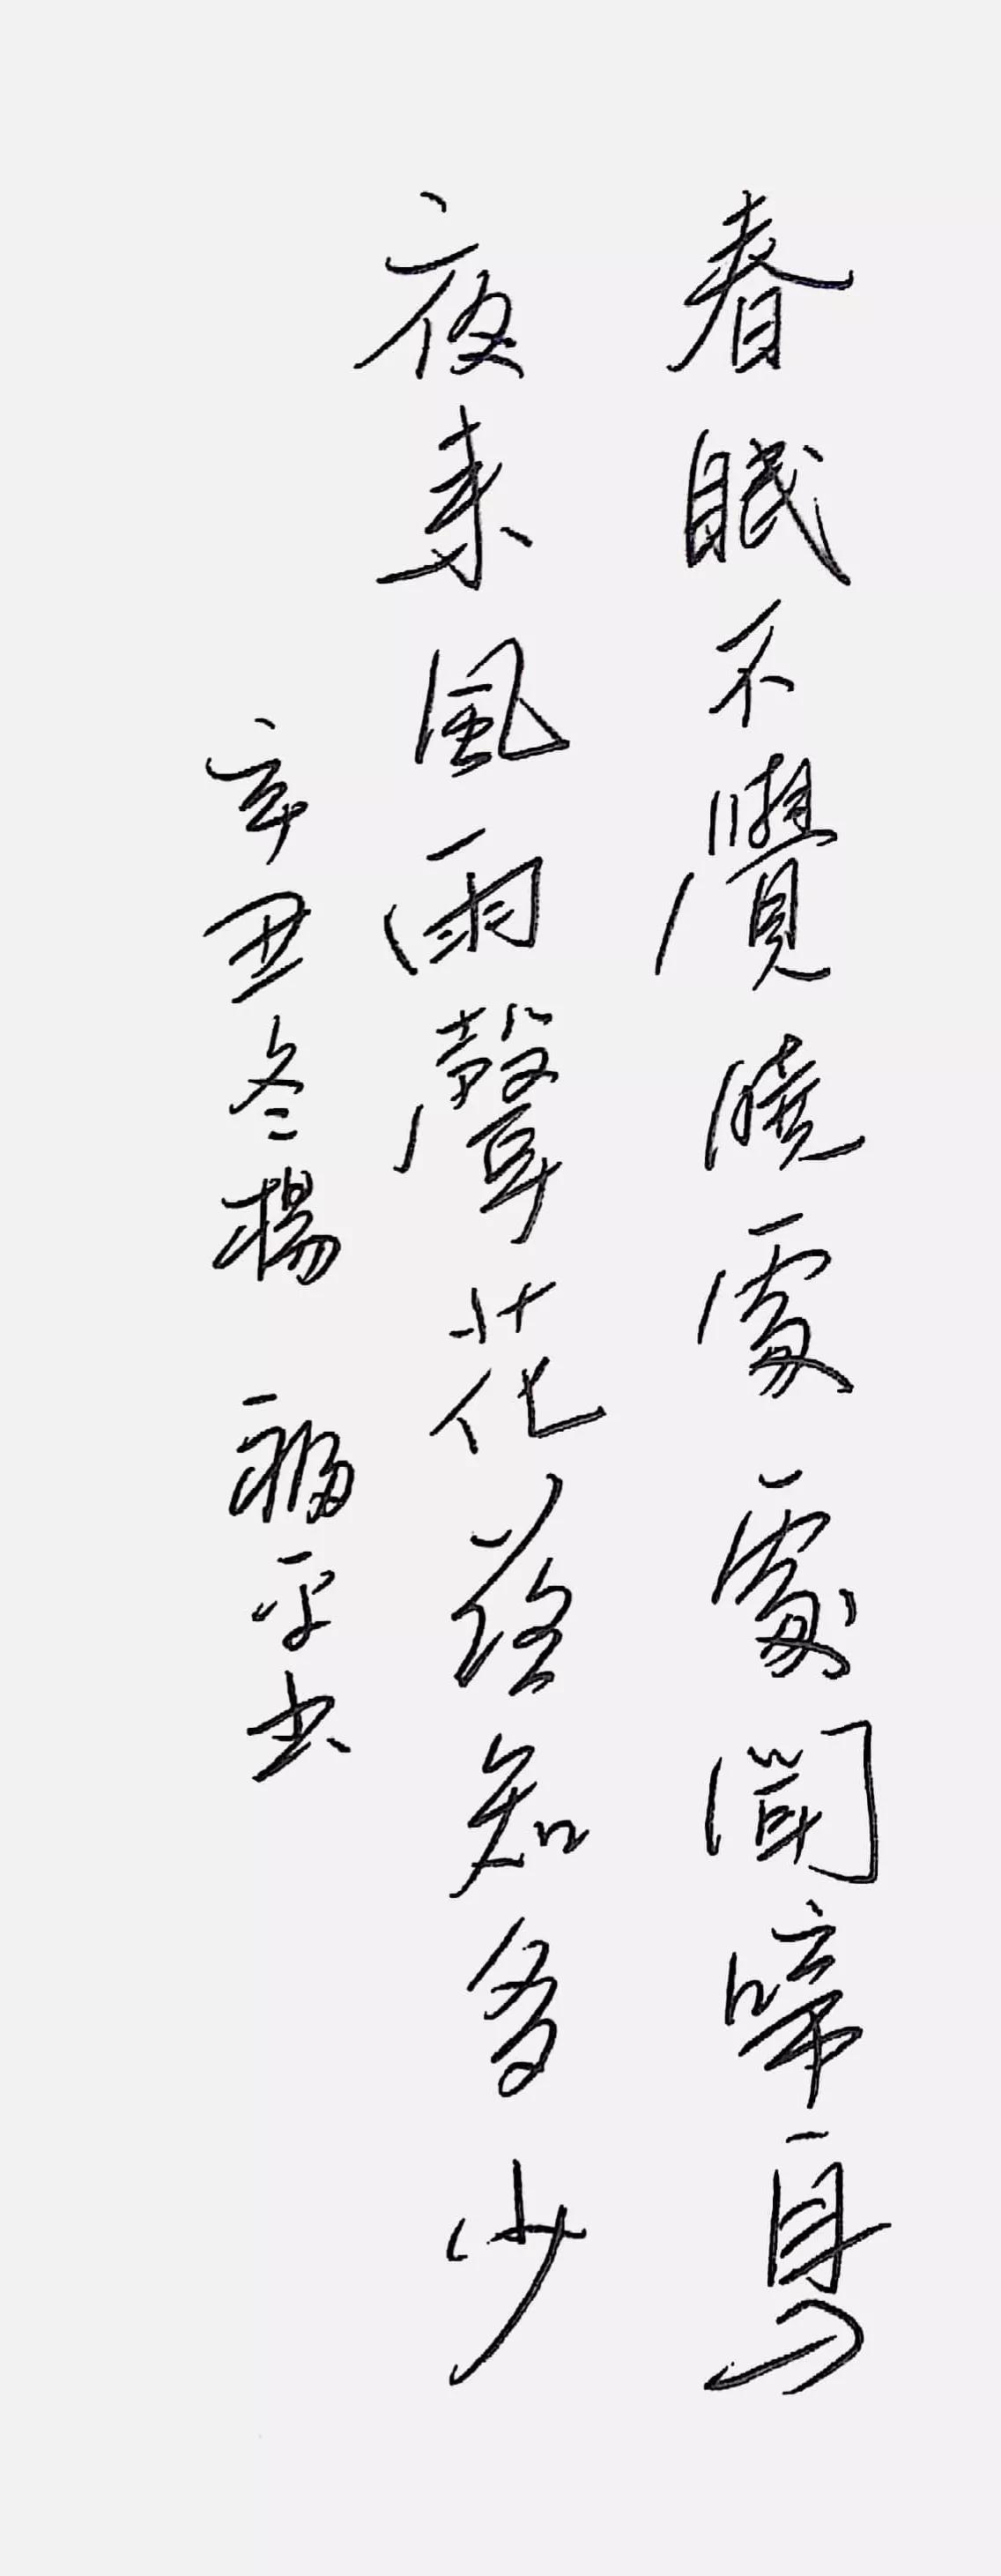 春眠不覺曉處處聞啼鳥
夜来風雨聲花落知多少
辛丑冬楊福平书